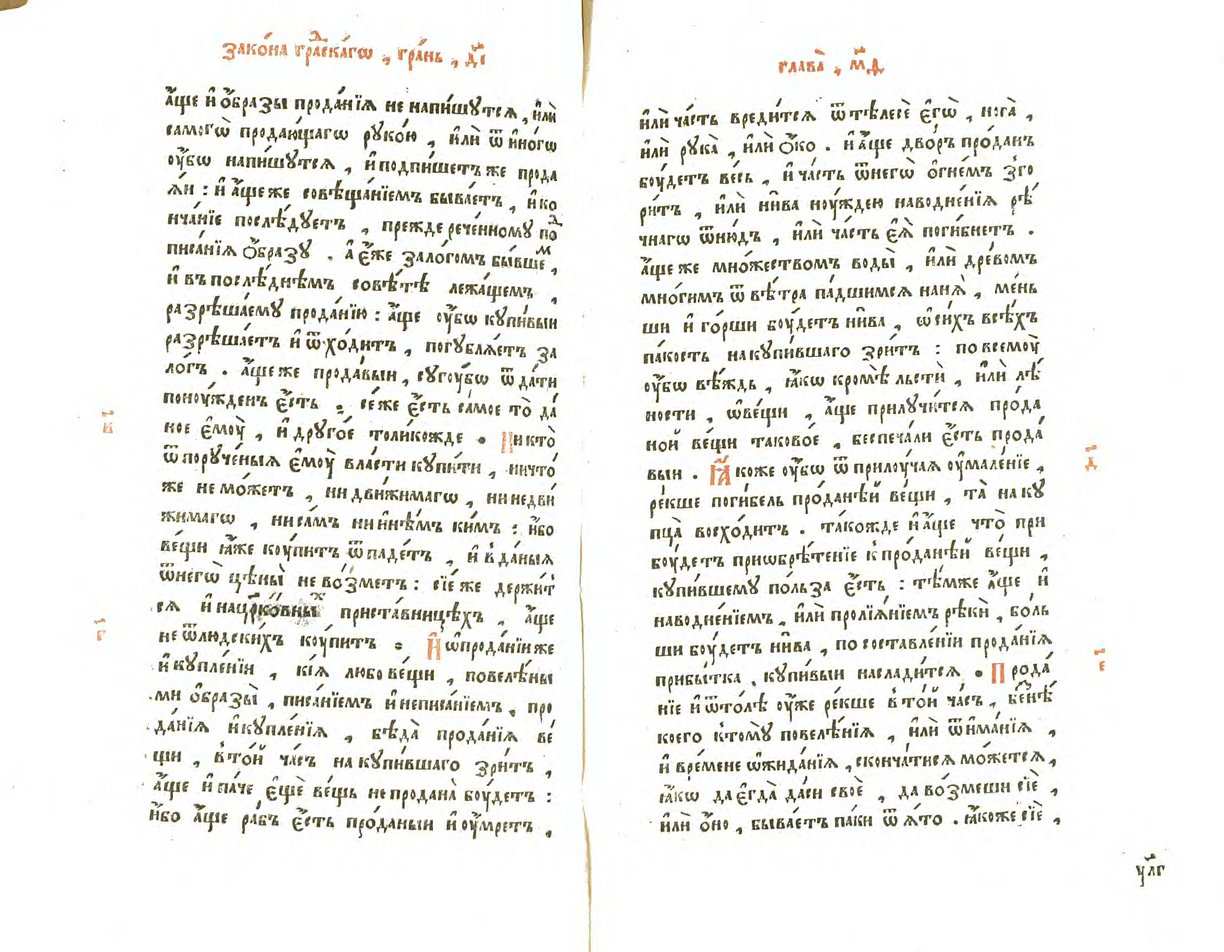 зако́на гра́дскагѡ , гра́нь , д҃і
а҆́ще и҆ ѻ҆́бразы прода́нїѧ не напи́шꙋтсѧ , и҆лѝ
самогѡ̀ продаю́щагѡ рꙋко́ю , и҆лѝ ѿ и҆но́гѡ
ᲂу҆́бѡ напи́шꙋтсѧ , и҆подпи́шетъ же прода
ѧ́и : и҆ а҆́ще же совѣща́нїемъ быва́етъ , и҆ ко
нча́нїе послѣ́дꙋетъ , пре́жде рече́нномꙋ по
писа́нїѧ ѻ҆́бразꙋ . а҆ є҆́же зало́гомъ бы́вшем ,
и҆ въ послѣ́днѣмъ совѣ́тѣ лежа́щемъ ,
разрѣша́емꙋ прода́нїю : а҆́ще ᲂу҆́бѡ кꙋпи́выи
разрѣша́етъ и҆ ѿхо́дитъ , погꙋблѧ́етъ за
ло́гъ . а҆́ще же прода́выи , сꙋгꙋ́бѡ ѿда́ти
понꙋ́жденъ є҆́сть . се́же є҆́сть са́мое то̀ да́
ное є҆мꙋ̀ , и҆ дрꙋго́е толи́кожде . Никто̀
ѿ порꙋче́ныѧ є҆мꙋ̀ вла́сти кꙋпи́ти , ничто́
же не мо́жетъ , ни дви́жимагѡ , ни недви́
жимагѡ , ни са́мъ ни и҆нѣ́мъ ки́мъ : и҆́бо
ве́щи ꙗ҆̀же кꙋ́питъ ѿпаде́тъ , и҆ в̾да́ныѧ
ѿ него̀ цѣны̀ не во́зметъ : сїе́ же держи́т
сѧ и҆ на цр҃ко́вных приста́вницѣхъ , а҆́ще
не ѿ людски́хъ кꙋ́питъ . И҆ ѡ҆ прода́нїи же
и҆ кꙋпле́нїи , кі́ѧ любо ве́щи , повелѣ́ны
ми ѻ҆́бразы̀ , писа́нїемъ и҆ неписа́нїемъ , про
да́нїѧ и҆ кꙋпле́нїѧ , бѣда̀ прода́нїѧ ве́
щи , в̾ то́й ча́съ на кꙋпи́вшаго зри́тъ ,
а҆́ще и҆ па́че є҆щѐ ве́щь не про́дана̀ бꙋ́детъ :
и҆́бо а҆́ще ра́бъ є҆́сть про́даныи и҆ ᲂу҆́мретъ ,
глава̀ , м҃д
и҆лѝ ча́сть вреди́тсѧ ѿ тѣлесѐ є҆гѡ̀ , нога̀ ,
и҆лѝ рꙋка̀ , и҆лѝ ѻ҆́ко . и҆ а҆́ще дво́ръ про́данъ
бꙋ́детъ ве́сь , и҆ ча́сть ѿ негѡ̀ ѻ҆гне́мъ зго
ри́тъ , и҆лѝ ни́ва нꙋ́ждею наводне́нїѧ рѣ́
чнагѡ ѿню́дъ , и҆лѝ ча́сть є҆ѧ̀ поги́бнетъ .
а҆́ще же мно́жествомъ воды̀ , и҆лѝ дре́вомъ
мно́гимъ ѿ вѣ́тра па́дшимсѧ на нѧ̀ , ме́нь
ши и҆ го́рши бꙋ́детъ ни́ва , ѡ҆ си́хъ всѣ́хъ
па́кость на кꙋпи́вшаго зри́тъ : по всемꙋ̀
ᲂу҆́бѡ вѣ́ждь , ꙗ҆́кѡ кромѣ̀ лстѝ , и҆лѝ лѣ́
ности , ѡ҆ ве́щи , а҆́ще прилꙋчи́тсѧ про́да
ной ве́щи таково́е , беспеча́ли є҆́сть прода́
выи . Ꙗ҆́коже ᲂу҆́бѡ ѿ прилꙋ́чаѧ ᲂу҆мале́нїе ,
ре́кше поги́бель про́данѣй ве́щи , та̀ на кꙋ
пца̀ восхо́дитъ . тако́жде и҆ а҆́ще что̀ при
бꙋ́детъ приѡбрѣ́тенїе к̾ про́данѣй ве́щи ,
кꙋпи́вшемꙋ по́льза є҆́сть : тѣ́мже а҆́ще и҆
наводне́нїемъ , и҆лѝ пролїѧ́нїемъ рѣкѝ , бо́ль
ши бꙋ́детъ ни́ва , по составле́нїи прода́нїѧ
прибы́тка , кꙋпи́выи наслади́тсѧ . Прода́
нїе и҆ ѿто́лѣ ᲂу҆́же ре́кше в̾ то́й ча́съ , бе́нѣ
коего к̾томꙋ̀ повелѣ́нїѧ , и҆лѝ ѿима́нїѧ ,
и҆ вре́мене ѡ҆жида́нїѧ , сконча́тисѧ мо́жетсѧ ,
ꙗ҆́кѡ да є҆гда̀ да́си своѐ , да во́змеши сїѐ ,
и҆лѝ ѻ҆но̀ , быва́етъ па́ки ѿѧ́то . ꙗ҆́коже сїѐ ,
в҃
г҃
д҃
є҃
ул҃г